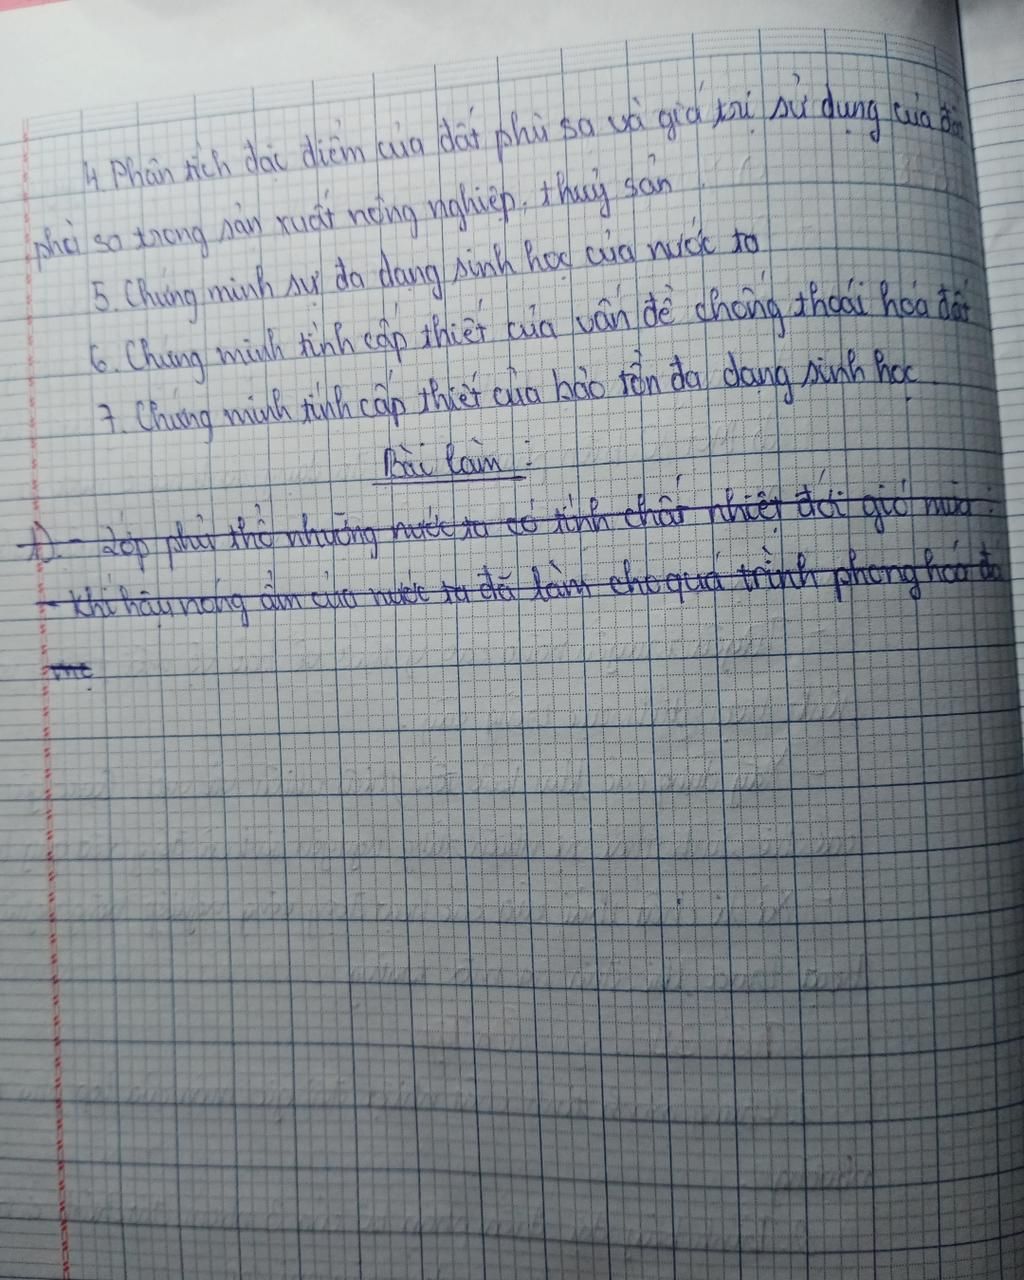 4. Phân tích đặc điểm của đất phù sa và giá trị sử dụng của đất
phù sa trong sản xuất nông nghiệp, thuỷ sản
5. Chứng minh sự đa dạng sinh học của nước ta
6. Chứng minh tính cấp thiết của vấn đề chống thoái hóa đất
7. Chứng minh tính cấp thiết của bảo tồn đa dạng sinh học
Bài làm :
1). - Lớp phủ thổ nhưỡng nước ta có tính chất nhiệt đới gió mùa :
- Khí hậu nóng ẩm của nước ta đã làm cho quá trình phong hóa đá
mẹ